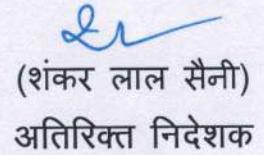 (शंकर लाल सैनी)
अतिरिक्त निदेशक